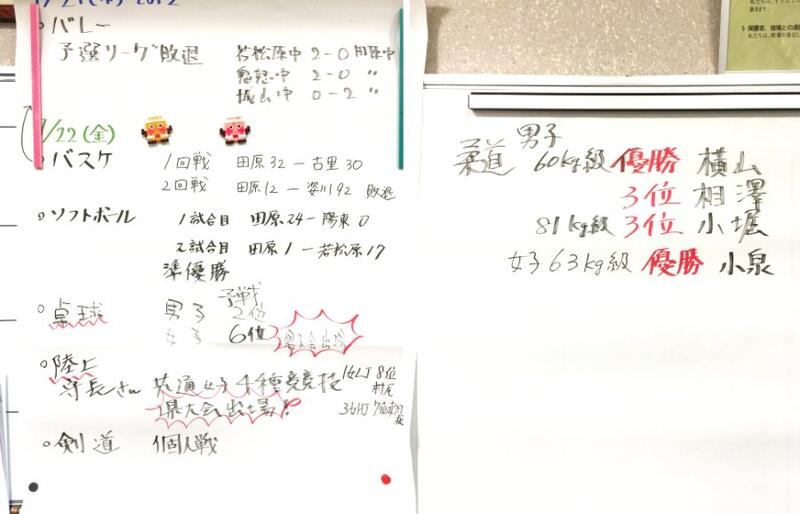 バレー
予選リーグ敗退 若松原中 2-0 田原中
2-0 〃
城山中 0-2 〃
1/22(金)
バスケ 1回戦 田原32-古里30
2回戦 田原12-姿川92 敗退
ソフトボール 1試合目 田原24-陽東0
2試合目 田原1-若松原17
準優勝
卓球 男子 予戦2位
女子 6位 県大会出場
陸上
共通女子4種競技 8位
県大会出場!
剣道 個人戦
男子
柔道 60kg級 優勝 横山
3位 相澤
81kg級 3位 小堀
女子63kg級 優勝 小泉
5 保護者、地域との連